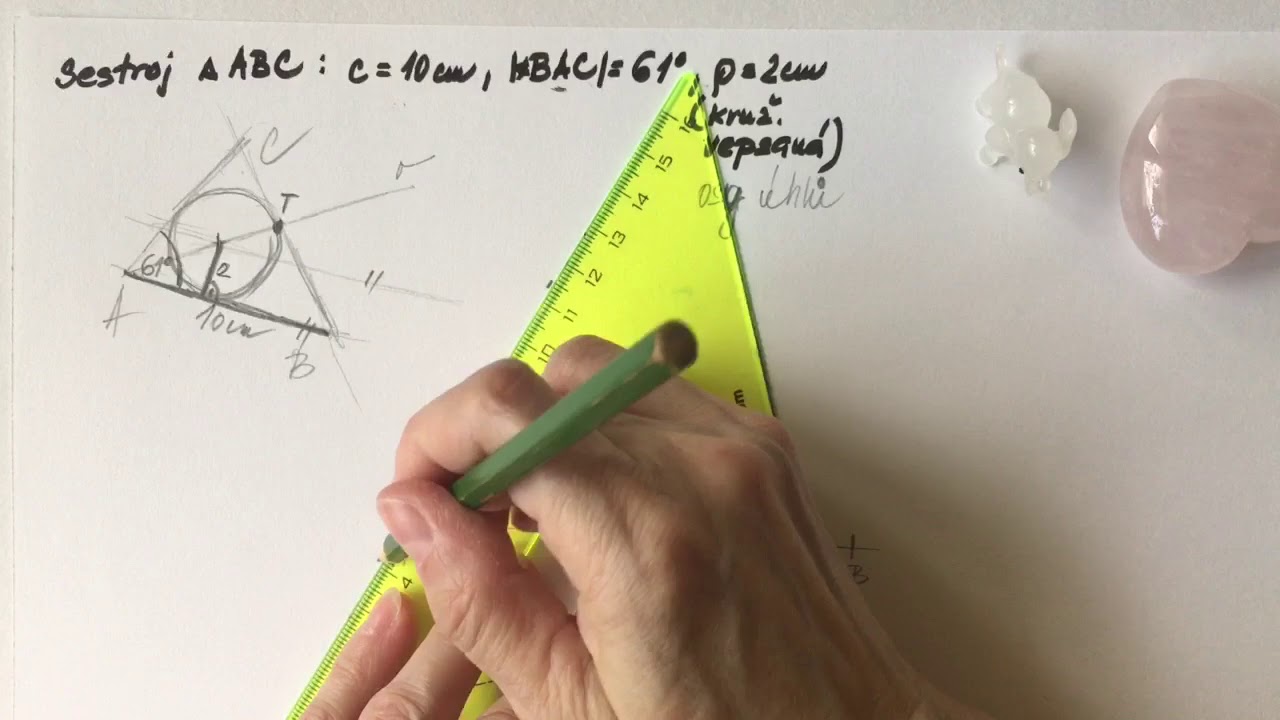 sestroj △ ABC : c = 10 cm, |∢BAC| = 61°, ρ = 2 cm
( kruž.
vepsaná)
osy úhlů
C
T
r
61°
2
A
10 cm
B
15
14
13
12
11
10
4
B